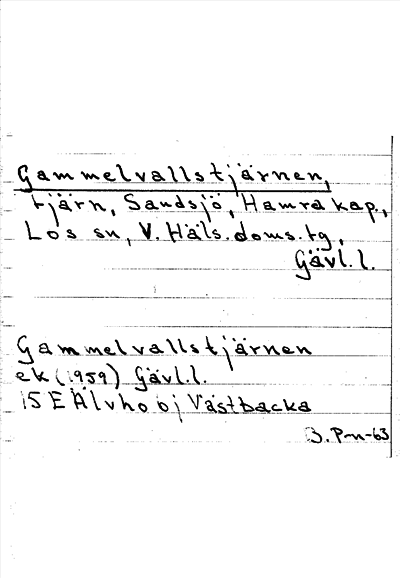 Gammelvallstjärnen,
tjärn, Sandsjö, Hamra kap.,
Los sn, V. Häls. doms. tg,
Gävl. l.
Gammelvallstjärnen
ek (1959) Gävl. l.
15 E Älvho oj Västbacka
B. P-n-63